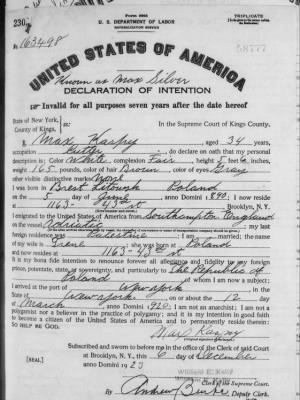 Form 2203
TRIPLICATE
U. S. DEPARTMENT OF LABOR
NATURALIZATION SERVICE
No. 163498
58777
UNITED STATES OF AMERICA
Known as Max Silver
DECLARATION OF INTENTION
Invalid for all purposes seven years after the date hereof
State of New York,
County of Kings,
ss:
In the Supreme Court of Kings County.
I, Max Kaspy, aged 34 years,
occupation, do declare on oath that my personal
description is: Color White, complexion Fair, height 5 feet 6 inches,
weight 165 pounds, color of hair Brown, color of eyes Gray
other visible distinctive marks None
I was born in Brest Litowsk Poland
on the 5 day of June, anno Domini 1890; I now reside
at 1163-43 st, Brooklyn, N. Y.
I emigrated to the United States of America from Southampton England
on the vessel Adriatic; my last
foreign residence was Palestine; I am married; the name
of my wife is Irene; she was born at Poland
and now resides at 1163-43 st
It is my bona fide intention to renounce forever all allegiance and fidelity to any foreign
prince, potentate, state, or sovereignty, and particularly to The Republic of
Poland, of whom I am now a subject;
I arrived at the port of New york, in the
State of New york, on or about the 12 day
of March, anno Domini 1920; I am not an anarchist; I am not a
polygamist nor a believer in the practice of polygamy; and it is my intention in good faith
to become a citizen of the United States of America and to permanently reside therein:
SO HELP ME GOD.
Max Kaspy
Subscribed and sworn to before me in the office of the Clerk of said Court
at Brooklyn, N. Y., this 6 day of December
[SEAL]
anno Domini 1923
Clerk of the Supreme Court.
By, Deputy Clerk.